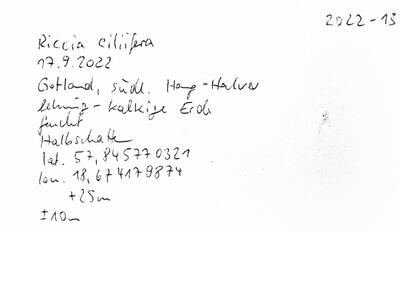 2022-13
Riccia ciliifera
17.9.2022
Gotland, südl. Hang-Halvar
lehmig-kalkige Erde
feucht
Halbschatten
lat. 57,845770321
lon. 18,674179874
+25m
±10m